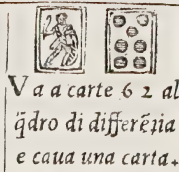 V a a carte 6 2 al
q̃dro di differẽzia
e caua una carta.